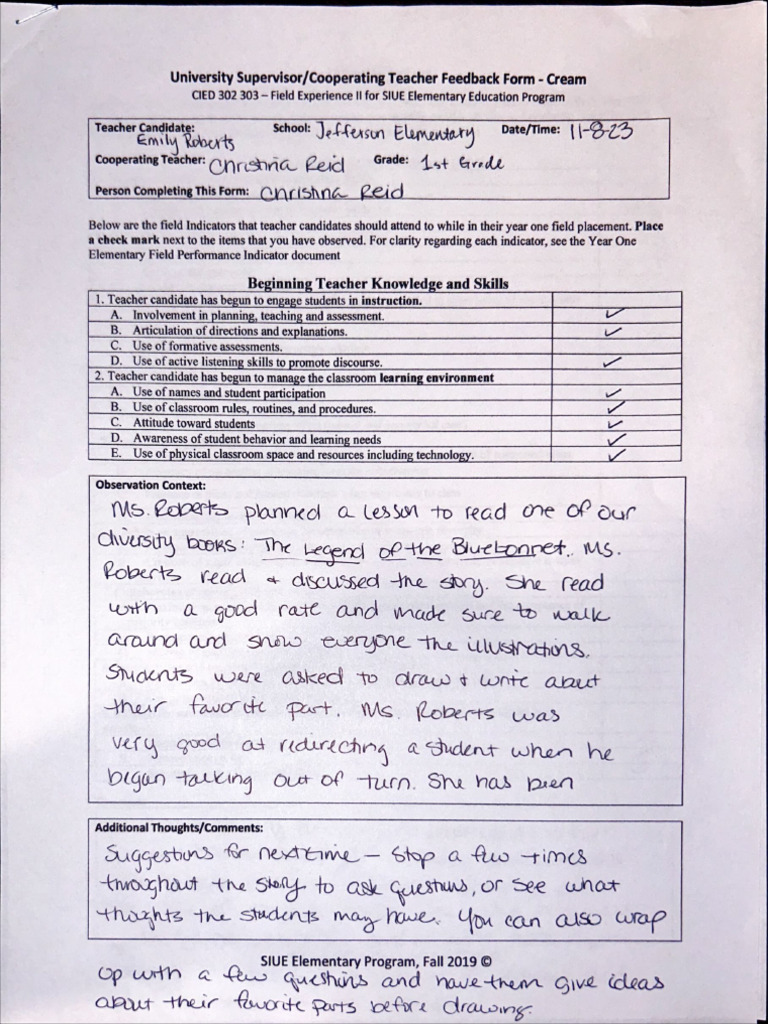 University Supervisor/Cooperating Teacher Feedback Form - Cream
CIED 302 303 – Field Experience II for SIUE Elementary Education Program
Teacher Candidate: Emily Roberts School: Jefferson Elementary Date/Time: 11-8-23
Cooperating Teacher: Christina Reid Grade: 1st Grade
Person Completing This Form: Christina Reid
Below are the field Indicators that teacher candidates should attend to while in their year one field placement. Place
a check mark next to the items that you have observed. For clarity regarding each indicator, see the Year One
Elementary Field Performance Indicator document
Beginning Teacher Knowledge and Skills
1. Teacher candidate has begun to engage students in instruction.
A. Involvement in planning, teaching and assessment. ✓
B. Articulation of directions and explanations. ✓
C. Use of formative assessments.
D. Use of active listening skills to promote discourse. ✓
2. Teacher candidate has begun to manage the classroom learning environment
A. Use of names and student participation ✓
B. Use of classroom rules, routines, and procedures. ✓
C. Attitude toward students ✓
D. Awareness of student behavior and learning needs ✓
E. Use of physical classroom space and resources including technology. ✓
Observation Context:
Ms. Roberts planned a lesson to read one of our
diversity books: The Legend of the Bluebonnet. Ms.
Roberts read + discussed the story. She read
with a good rate and made sure to walk
around and show everyone the illustrations.
Students were asked to draw + write about
their favorite part. Ms. Roberts was
very good at redirecting a student when he
began talking out of turn. She has been
Additional Thoughts/Comments:
Suggestions for next time – Stop a few times
throughout the story to ask questions, or see what
thoghts the students may have. You can also wrap
SIUE Elementary Program, Fall 2019 ©
up with a few questions and have them give ideas
about their favorite parts before drawing.